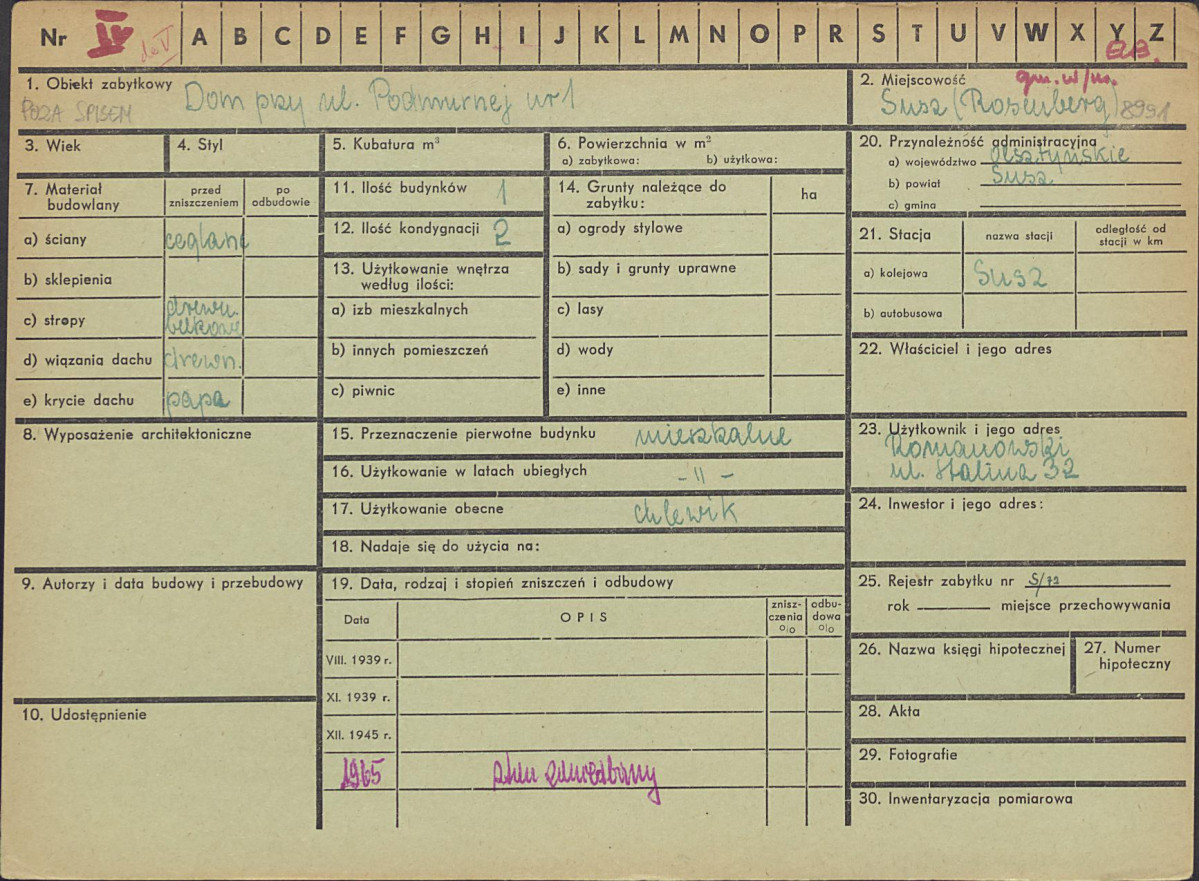 Nr IV do V A B C D E F G H I J K L M N O P R S T U V W X Y Z
1. Obiekt zabytkowy Dom przy ul. Podmurnej nr 1
POZA SPISEM
2. Miejscowość gm. w/m.
Susz (Rosenberg) 8991
3. Wiek
4. Styl
5. Kubatura m³
6. Powierzchnia w m²
a) zabytkowa: b) użytkowa:
7. Materiał budowlany
przed zniszczeniem
po odbudowie
a) ściany ceglane
b) sklepienia
c) stropy drewn. belkowe
d) wiązania dachu drewn.
e) krycie dachu papa
11. Ilość budynków 1
12. Ilość kondygnacji 2
13. Użytkowanie wnętrza
według ilości:
a) izb mieszkalnych
b) innych pomieszczeń
c) piwnic
14. Grunty należące do
zabytku:
ha
a) ogrody stylowe
b) sady i grunty uprawne
c) lasy
d) wody
e) inne
20. Przynależność administracyjna
a) województwo olsztyńskie
b) powiat Susz
c) gmina
21. Stacja
nazwa stacji
odległość od
stacji w km
a) kolejowa Susz
b) autobusowa
22. Właściciel i jego adres
8. Wyposażenie architektoniczne
15. Przeznaczenie pierwotne budynku mieszkalne
16. Użytkowanie w latach ubiegłych - " -
17. Użytkowanie obecne chlewik
18. Nadaje się do użycia na:
23. Użytkownik i jego adres
Romanowski
ul. Stalina 32
24. Inwestor i jego adres:
9. Autorzy i data budowy i przebudowy
19. Data, rodzaj i stopień zniszczeń i odbudowy
Data
OPIS
znisz-
czenia
%
odbu-
dowa
%
VIII. 1939 r.
XI. 1939 r.
XII. 1945 r.
1965 stan zaniedbany
10. Udostępnienie
25. Rejestr zabytku nr S/72
rok miejsce przechowywania
26. Nazwa księgi hipotecznej
27. Numer
hipoteczny
28. Akta
29. Fotografie
30. Inwentaryzacja pomiarowa